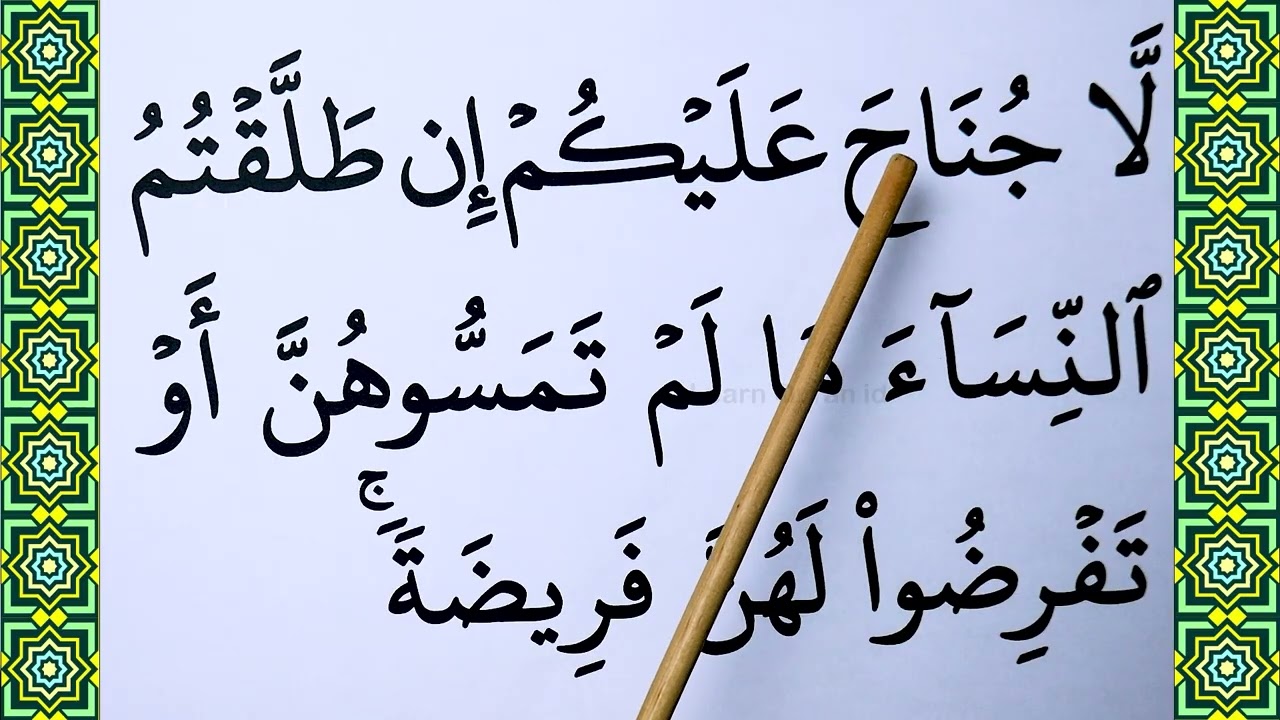 لَّا جُنَاحَ عَلَيْكُمْ إِن طَلَّقْتُمُ
ٱلنِّسَآءَ مَا لَمْ تَمَسُّوهُنَّ أَوْ
تَفْرِضُوا۟ لَهُنَّ فَرِيضَةً ۚ